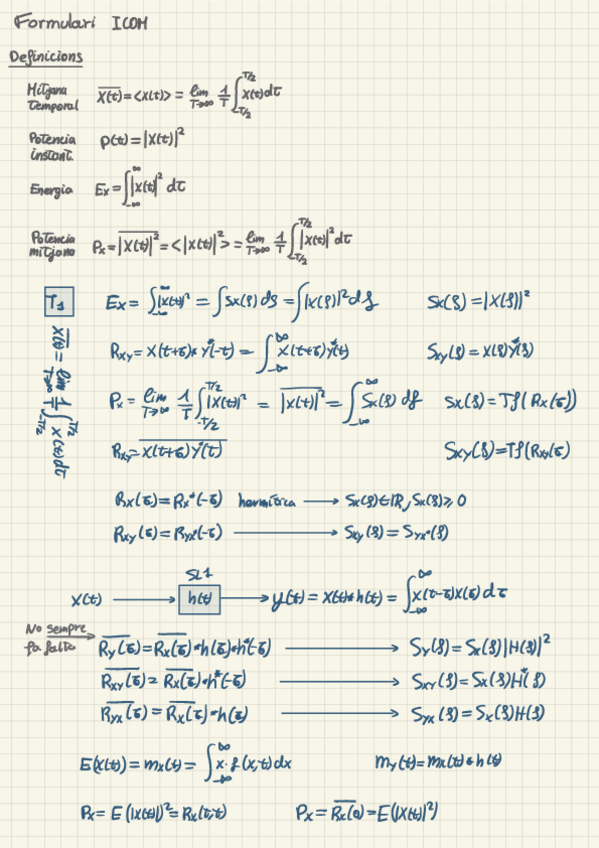 Formulari ICOM
Definicions
Mitjana temporal  \overline{X(t)} = <x(t)> = lim_{T→∞} 1/T ∫_{-T/2}^{T/2} x(t) dτ
Potencia instant.  p(t) = |x(t)|²
Energia  Ex = ∫_{-∞}^{∞} |x(t)|² dτ
Potencia mitjana  Px = \overline{|x(t)|²} = <|x(t)|²> = lim_{T→∞} 1/T ∫_{-T/2}^{T/2} |x(t)|² dτ
T1  Ex = ∫_{-∞}^{∞} |x(t)|² = ∫ Sx(f) df = ∫ |x(f)|² df  Sx(f) = |X(f)|²
\overline{X(t)} = lim_{T→∞} 1/T ∫_{-T/2}^{T/2} x(t) dτ
Rxy = x(t+σ) * y*(-t) = ∫_{-∞}^{∞} x(t+σ) y*(t)  Sxy(f) = X(f) Y*(f)
Px = lim_{T→∞} 1/T ∫_{-T/2}^{T/2} |x(t)|² = \overline{|x(t)|²} = ∫_{-∞}^{∞} Sx(f) df  Sx(f) = Tf(Rx(σ))
Rxy = \overline{x(t+σ) y*(t)}  Sxy(f) = Tf(Rxy(σ)
Rx(σ) = Rx*(-σ)  hermitica → Sx(f) ∈ IR, Sx(f) ≥ 0
Rxy(σ) = Ryx*(-σ) → Sxy(f) = Syx*(f)
SL1
x(t) → h(t) → y(t) = x(t) * h(t) = ∫_{-∞}^{∞} x(t-σ) x(σ) dτ
No sempre fa falta → \overline{Ry(σ)} = \overline{Rx(σ)} * h(σ) * h*(-σ) → Sy(f) = Sx(f) |H(f)|²
\overline{Rxy(σ)} = \overline{Rx(σ)} * h*(-σ) → Sxy(f) = Sx(f) H*(f)
\overline{Ryx(σ)} = \overline{Rx(σ)} * h(σ) → Syx(f) = Sx(f) H(f)
E(x(t)) = mx(t) = ∫_{-∞}^{∞} x · f(x,t) dx  my(t) = mx(t) * h(t)
Px = E(|x(t)|)² = Rx(t,t)  Px = \overline{Rx(0)} = E(|x(t)|²)